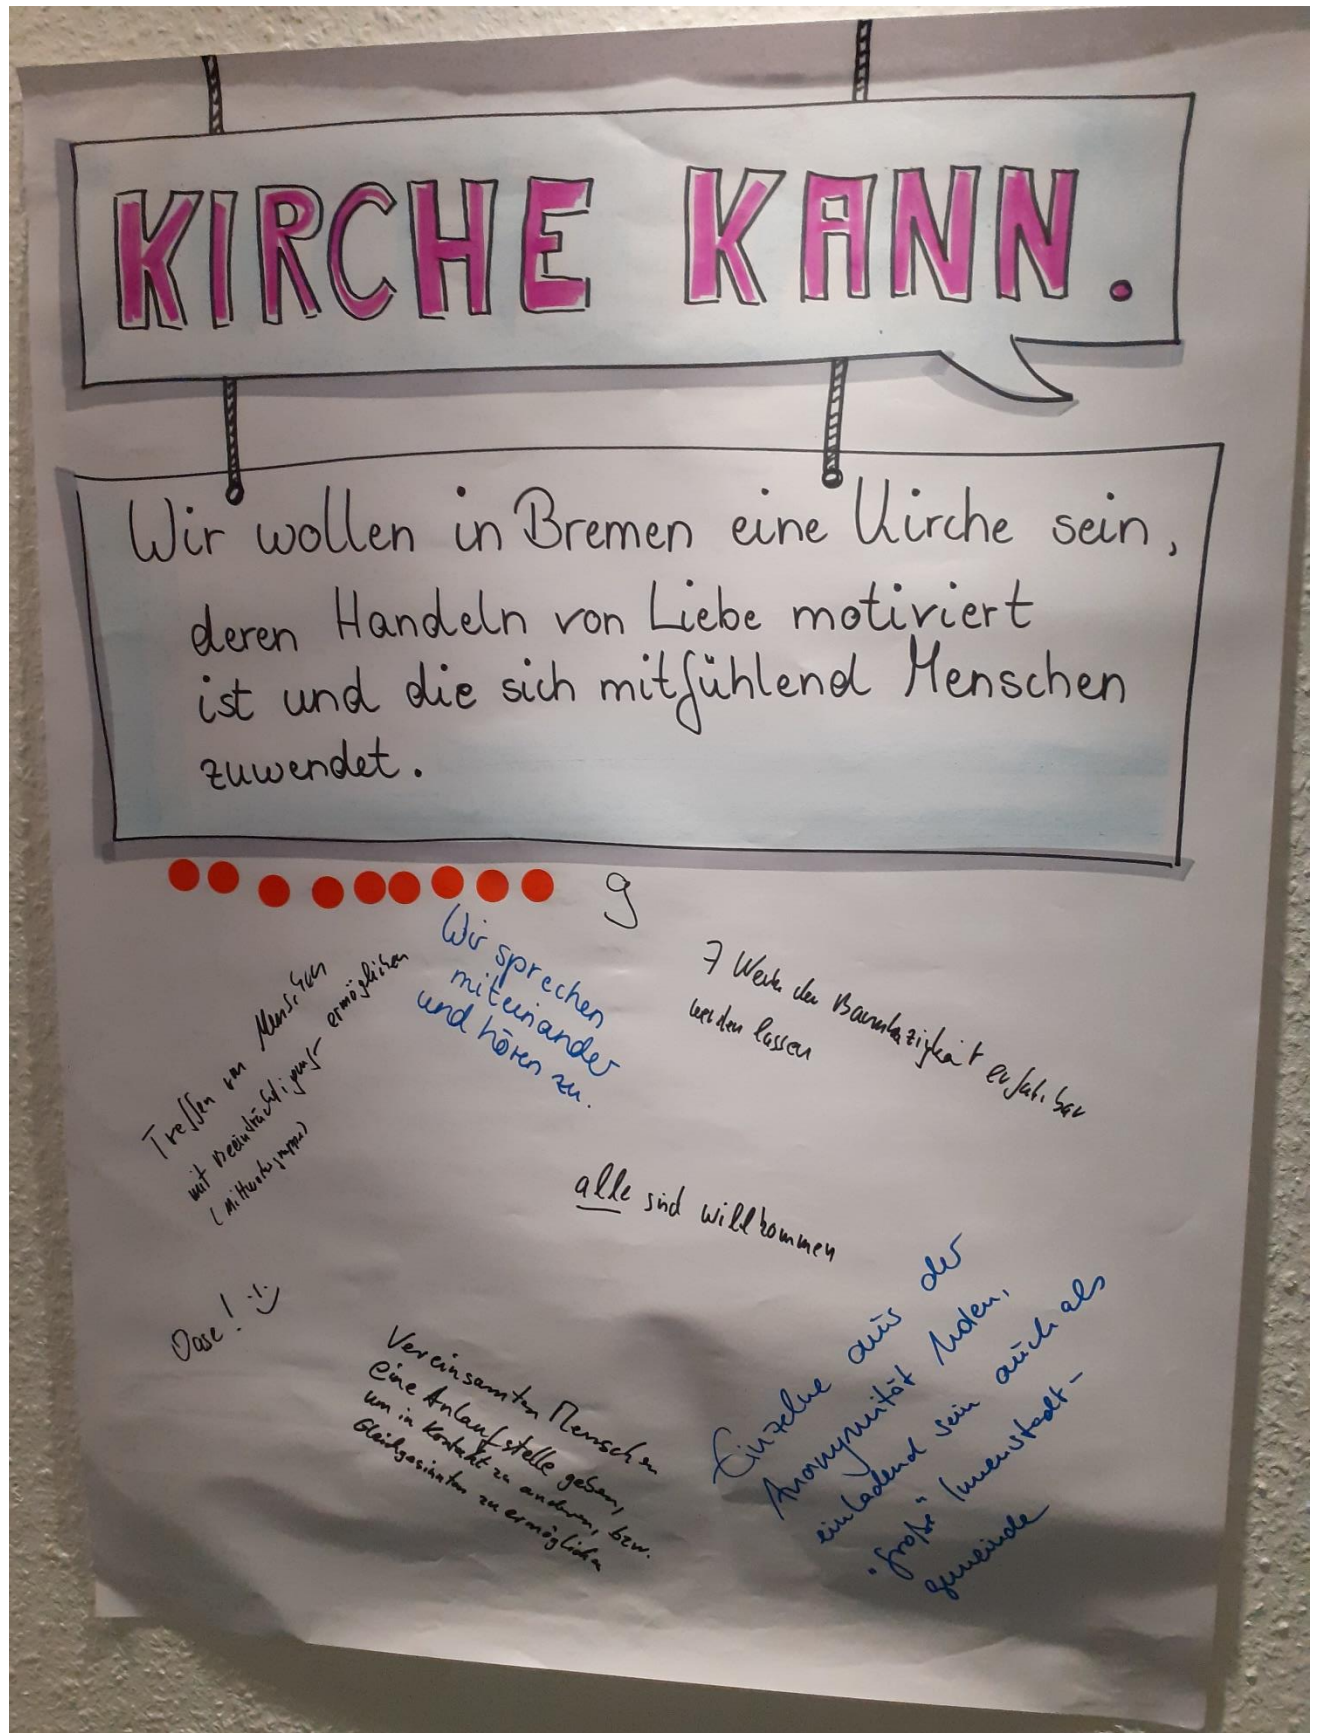 KIRCHE KANN.
Wir wollen in Bremen eine Kirche sein,
deren Handeln von Liebe motiviert
ist und die sich mitfühlend Menschen
zuwendet.
9
Treffen von Menschen
mit Beeinträchtigung ermöglichen
Wir sprechen
miteinander
und hören zu.
7 Werke der Barmherzigkeit erfahrbar
werden lassen
alle sind willkommen
Oase! :-)
Vereinsamten Menschen
eine Anlaufstelle geben,
um in Kontakt zu anderen, bzw.
Gleichgesinnten zu ermöglichen
Einzelne aus der
Anonymität holen,
einladend sein auch als
"große" Innenstadt-
gemeinde